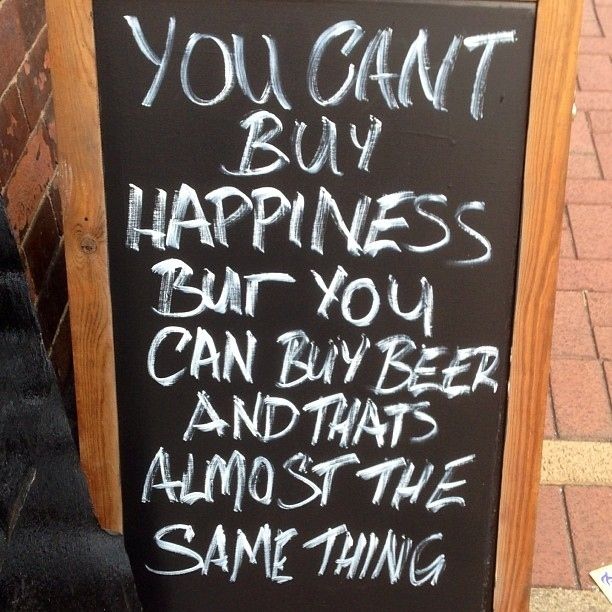 YOU CANT
BUY
HAPPINESS
BUT YOU
CAN BUY BEER
AND THATS
ALMOST THE
SAME THING